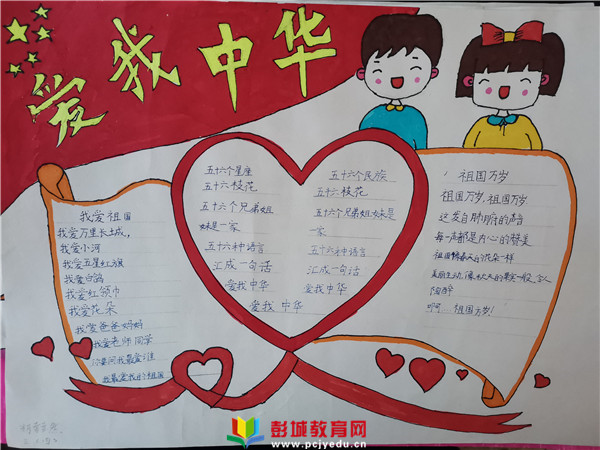 爱我中华
我爱祖国
我爱万里长城,
我爱小河
我爱五星红旗
我爱白鸽
我爱红领巾
我爱花朵
我爱爸爸妈妈
我爱老师 同学
你要问我最爱谁
我最爱我的祖国
五十六个星座
五十六枝花
五十六个兄弟姐
妹是一家
五十六种语言
汇成一句话
爱我中华
五十六个民族
五十六枝花
五十六个兄弟姐妹是
一家
五十六种语言
汇成一句话
爱我中华
爱我中华
祖国万岁
祖国万岁,祖国万岁
这发自肺腑的声音
每一声都是内心的赞美
祖国像春天的花朵一样
美丽生动,像秋天的果实一般,令人
陶醉
啊 祖国万岁!
彭城教育网
www.pcjyedu.cn